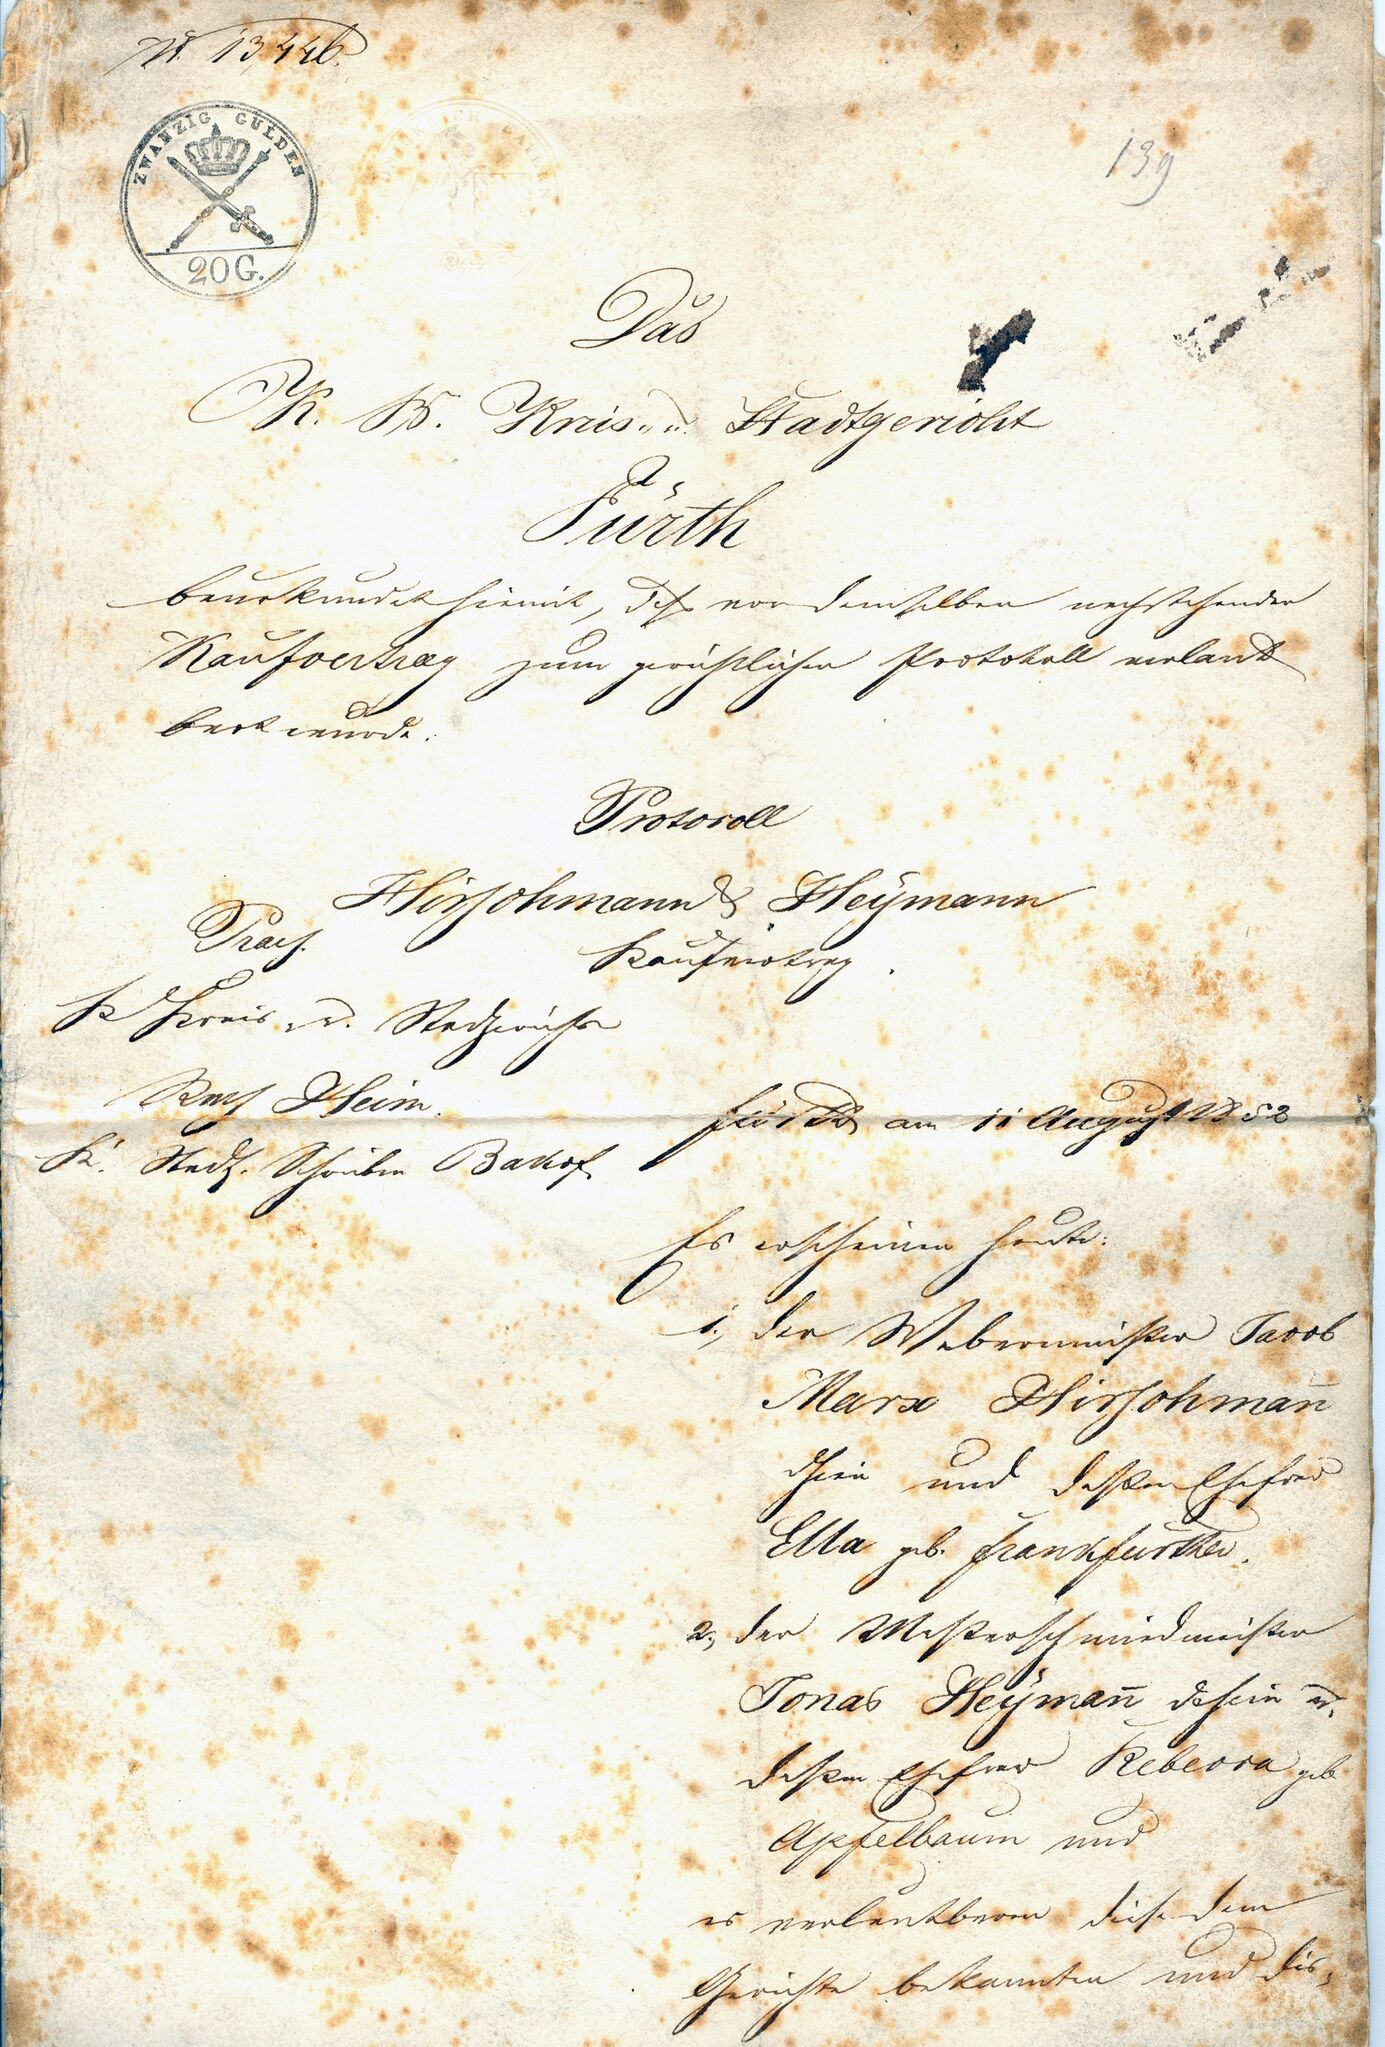 N. 13,446.
ZWANZIG GULDEN
20 G.
139
Das
K. B. Kreis- u. Stadtgericht
Fürth
beurkundet hiemit, daß vor demselben nachstehender
Kaufvertrag zum gerichtlichen Protokoll verlaut
bart wurde.
Protocoll
Hirschmann & Heÿmann
Praes. Kaufvertrag.
K Kreis u. Stadtgerichts
Heim.
Fürth am 11 August 1852
K. Stadtg. Schreiber
Es erscheinen heute:
1., der Webermeister Jacob
Marx Hirschman̄
dahier und dessen Ehefrau
Ella geb. Frankfurther.
2., der Messerschmiedmeister
Jonas Heÿman̄ dahier u.
dessen Ehefrau Rebecca geb
Apfelbaum und
es verlautbaren diese dem
Gerichte bekannten und dis-